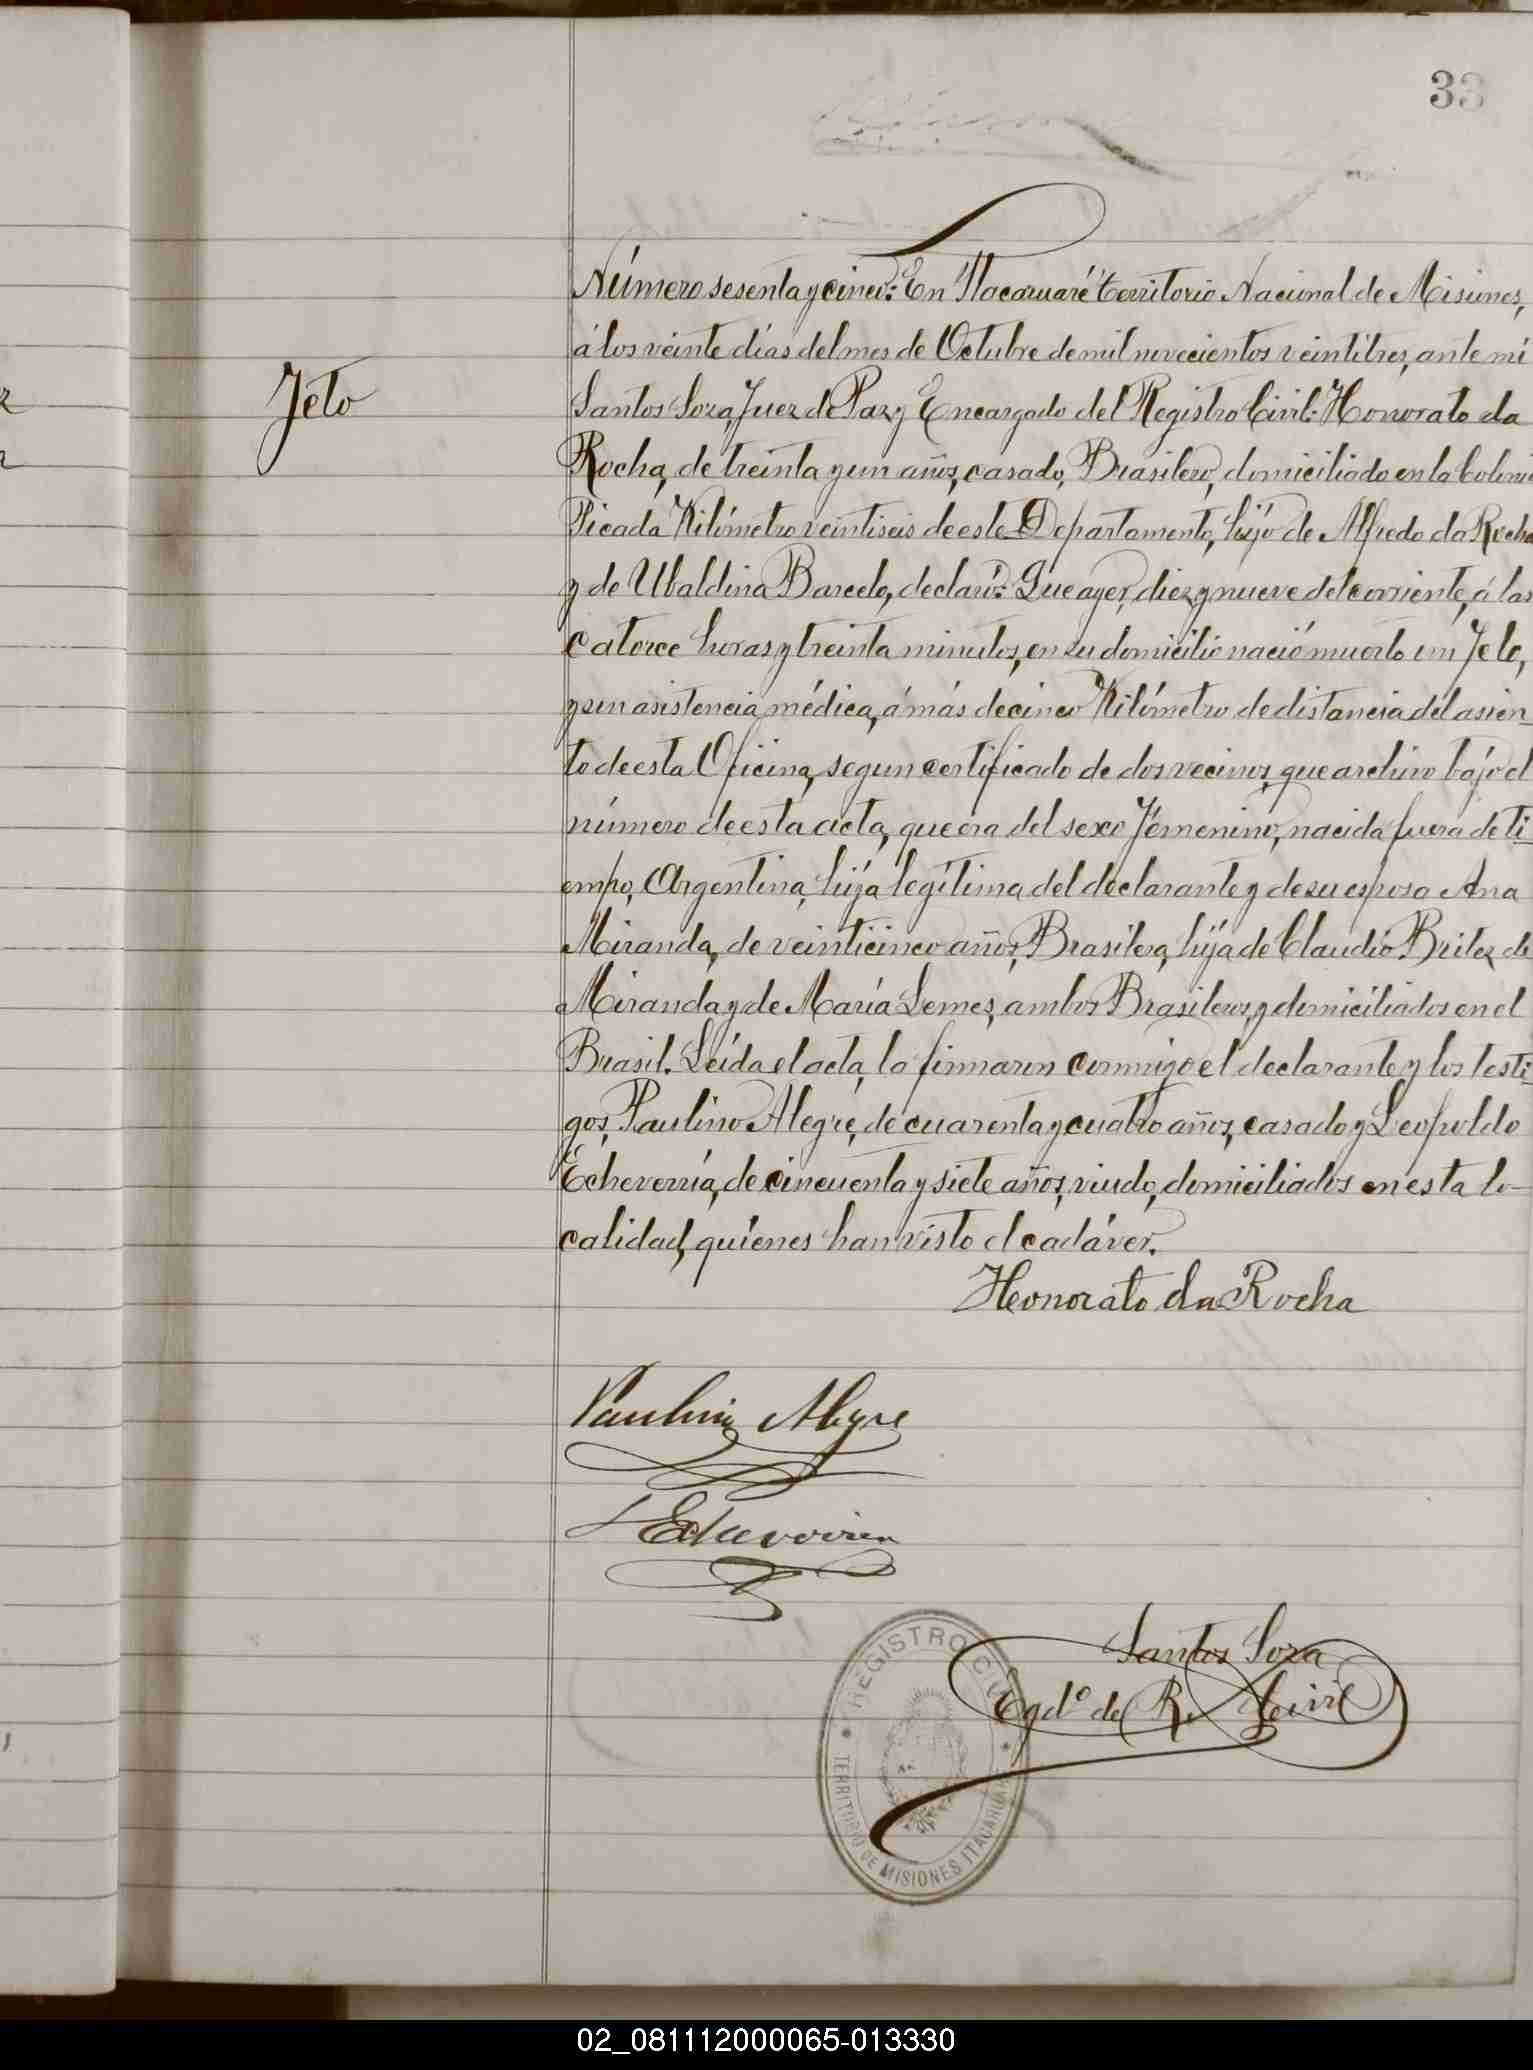 33
Número sesenta y cinco: En Itacaruaré territorio Nacional de Misiones,
á los veinte días del mes de Octubre de mil novecientos veintitres, ante mí
Jeto
Santos Soza, Juez de Paz y Encargado del Registro Civil: Honorato da
Rocha, de treinta y un años, casado, Brasilero, domiciliado en la Coloni
Picada Kilómetro veintiseis de este Departamento, hijo de Alfredo da Rocha
y de Ubaldina Barcelo, declaró: Que ayer, diez y nueve del corriente, á las
catorce horas y treinta minutos, en su domicilio nació muerto un Jeto,
y sin asistencia médica, á más de cinco Kilómetro de distancia del asien-
to de esta Oficina, segun certificado de dos vecinos, que archivo bajo el
número de esta acta, que era del sexo Jémenino, nacida fuera de ti-
empo, Argentina, hija legítima del declarante y de su esposa Ana
Miranda, de veinticinco años, Brasilera, hija de Claudio Britez de
Miranda y de María Lemes, ambos Brasileros, y domiciliados en el
Brasil. Leída el acta, la firmaron conmigo el declarante y los testi-
gos, Paulino Alegre, de cuarenta y cuatro años, casado y Leopoldo
Echeverría, de cincuenta y siete años, viudo, domiciliados en esta lo-
calidad, quiénes han visto el cadáver.
Honorato da Rocha
Paulino Alegre
L Echeverria
Santos Soza
Egdo de R. Civil
REGISTRO CIVIL
TERRITORIO DE MISIONES ITACARUARÉ
02_081112000065-013330